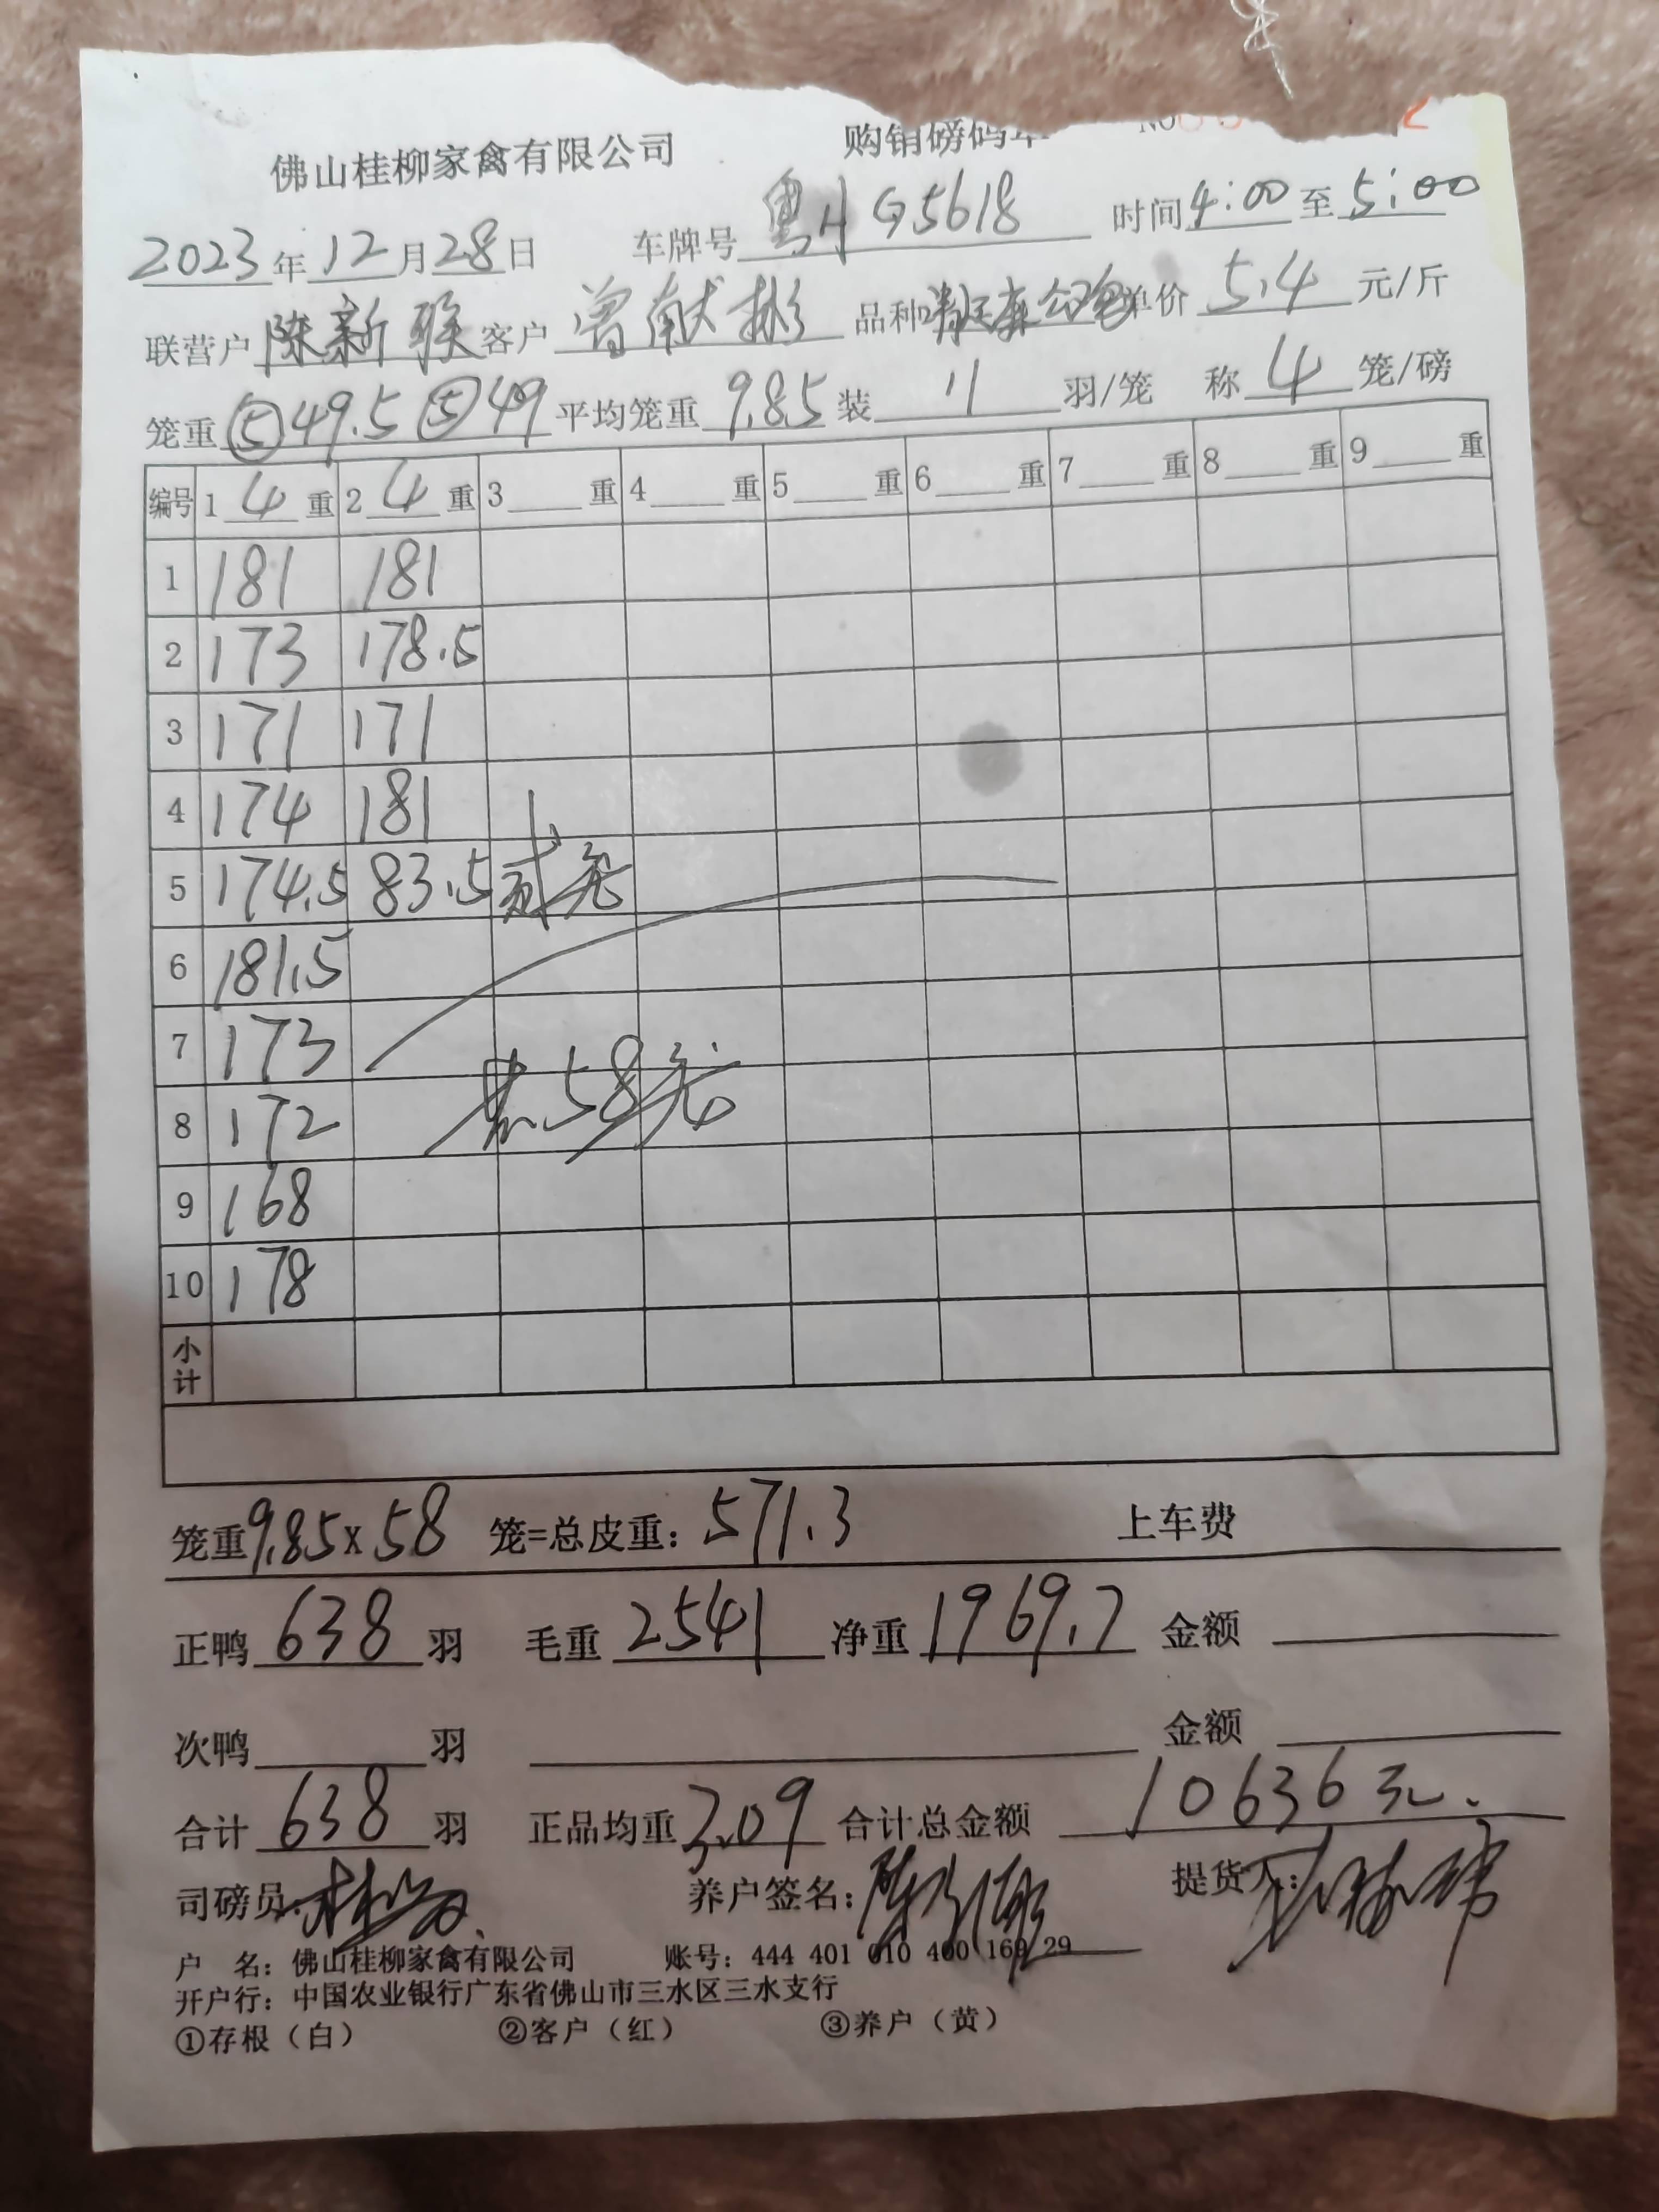 佛山桂柳家禽有限公司 购销磅码单 NO
2023年12月28日 车牌号 粤H G5618 时间4:00至5:00
联营户 陈新 客户 曾献彬 品种 单价 5.4 元/斤
笼重 ⑤49.5 ⑤49 平均笼重 9.85 装 11 羽/笼 称 4 笼/磅
编号 1 4 重 2 4 重 3 重 4 重 5 重 6 重 7 重 8 重 9 重
1 181 181
2 173 178.5
3 171 171
4 174 181
5 174.5 83.5 贰笼
6 181.5
7 173
8 172 共58笼
9 168
10 178
小计
笼重9.85×58 笼=总皮重:571.3 上车费
正鸭 638 羽 毛重 2541 净重 1969.7 金额
次鸭 羽 金额
合计 638 羽 正品均重 3.09 合计总金额 10636元.
司磅员: 养户签名: 提货人:
户 名:佛山桂柳家禽有限公司 账号:444 401 010 400 169 29
开户行:中国农业银行广东省佛山市三水区三水支行
①存根(白) ②客户(红) ③养户(黄)